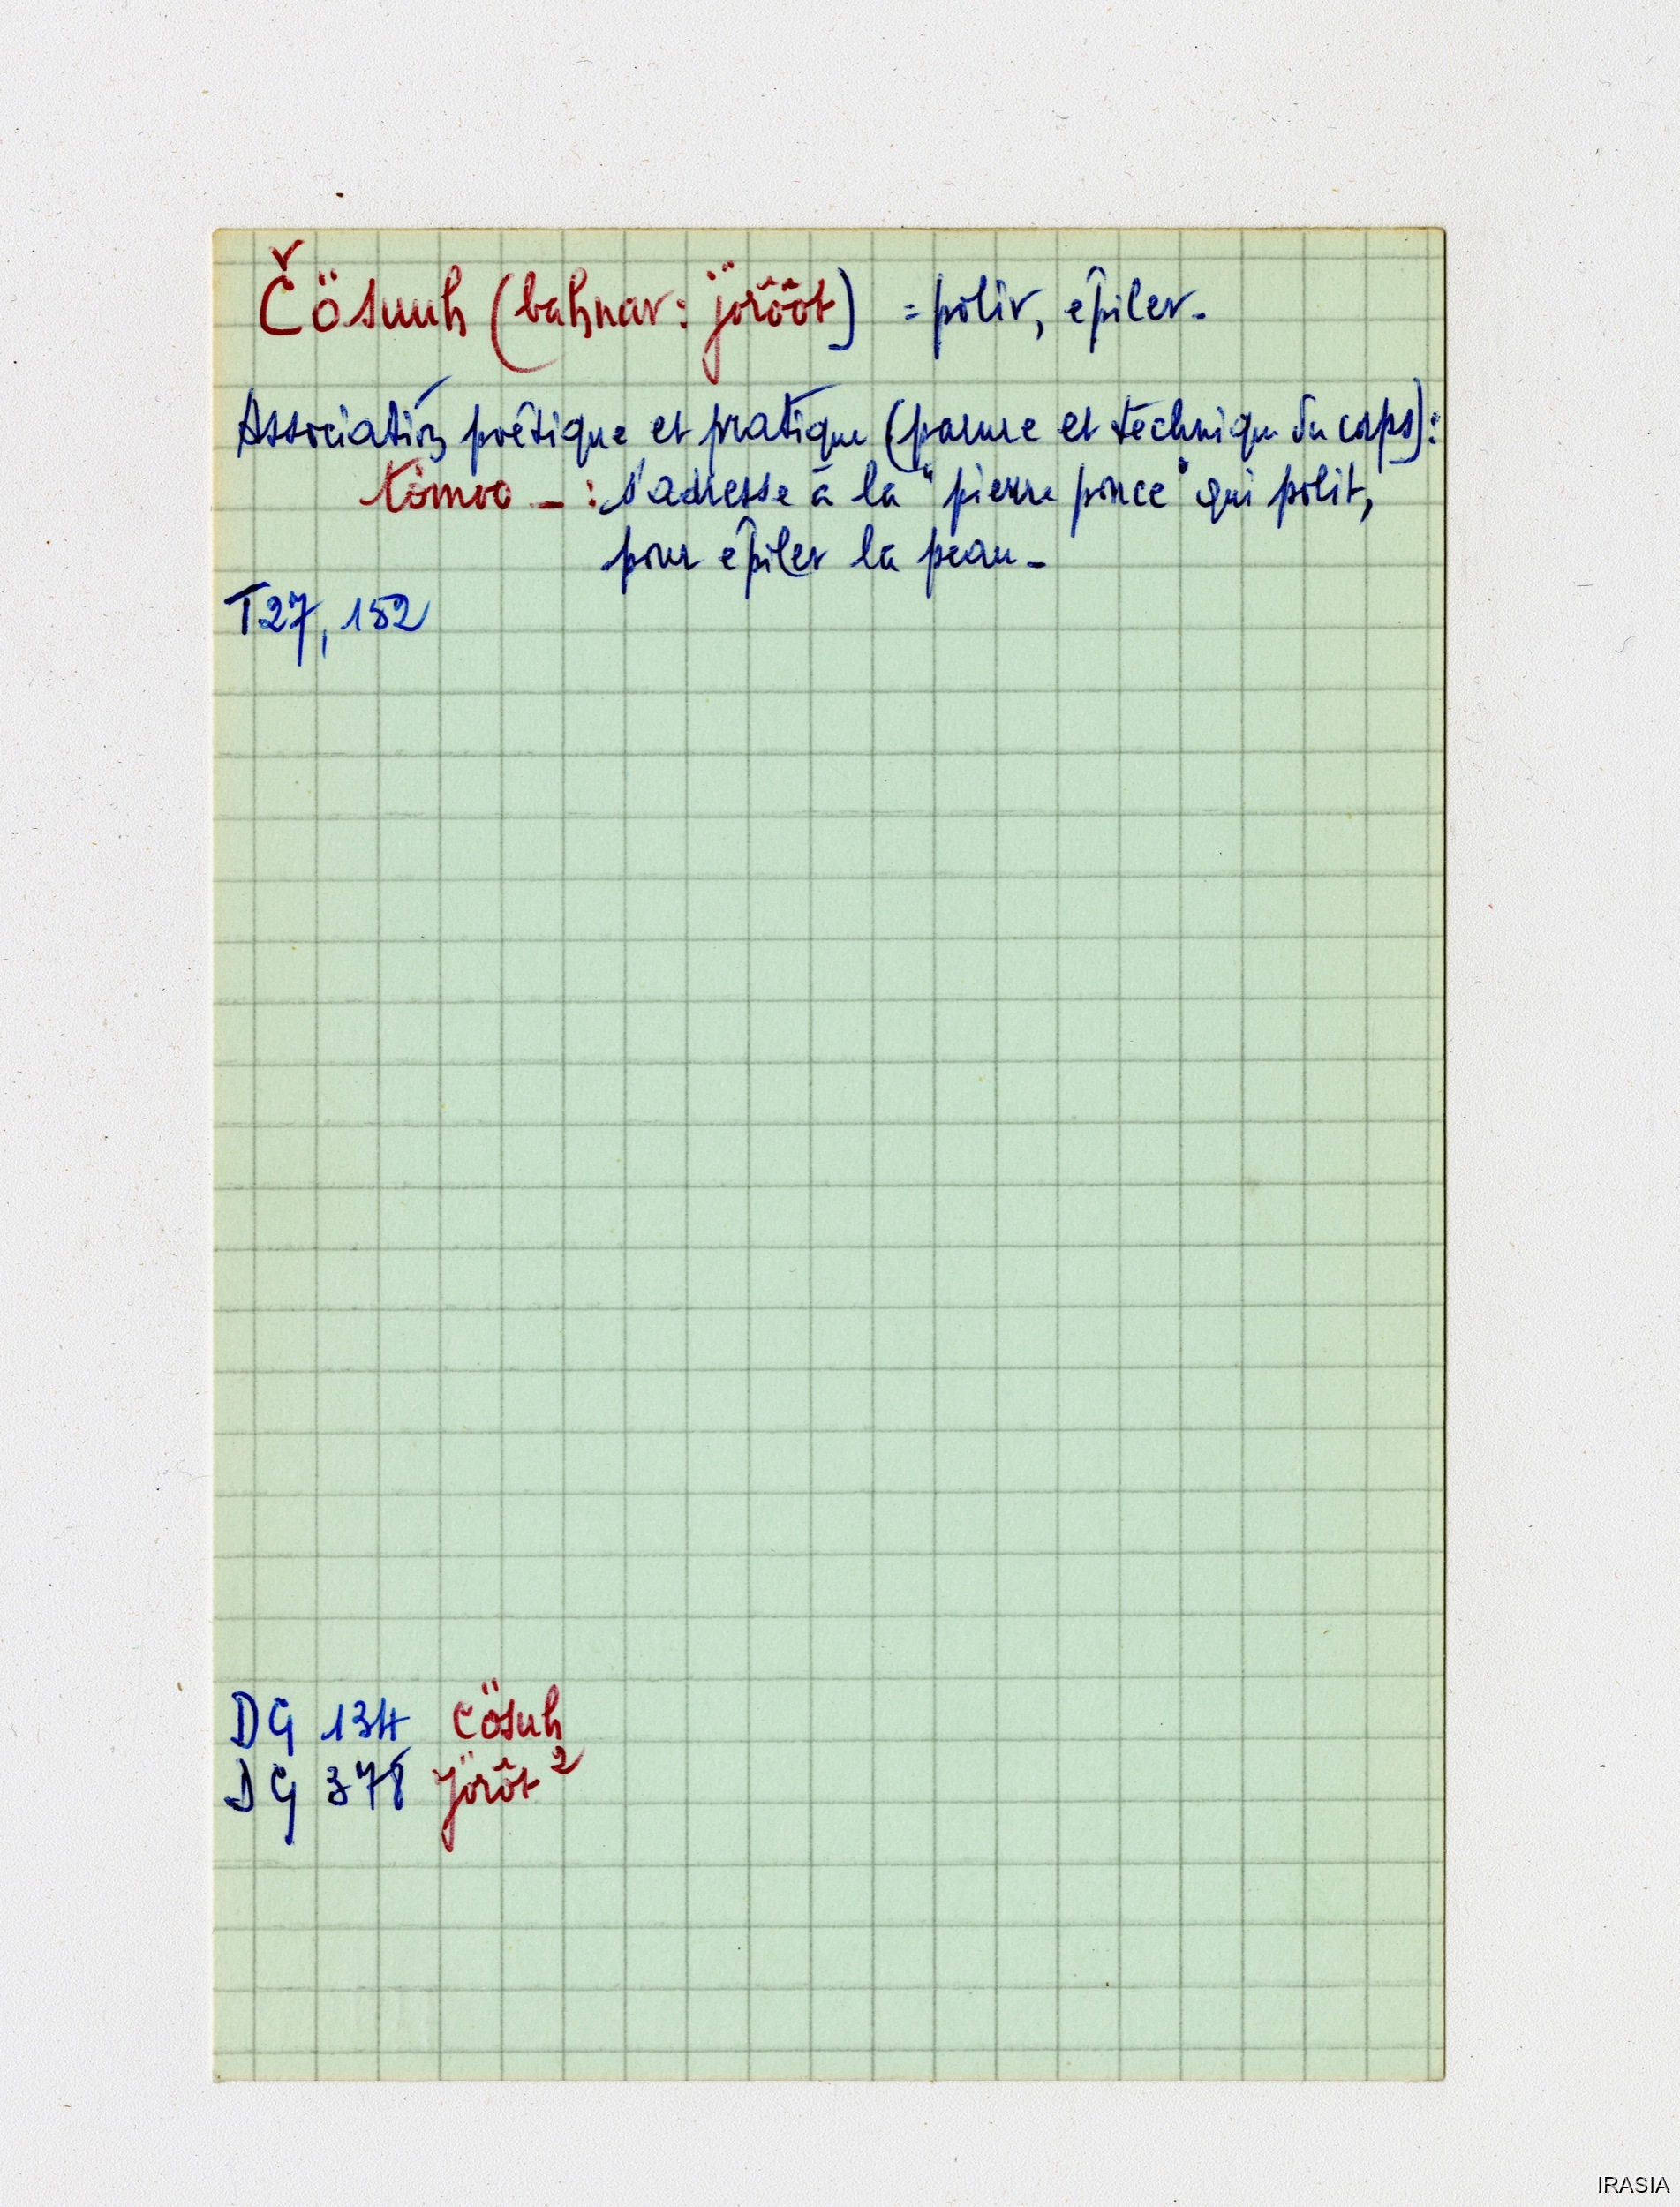 Čösuuh (bahnar: jörôôt) = polir, épiler.
Association poétique et pratique (parure et technique du corps):
tömoo _ : s'adresse à la "pierre ponce" qui polit,
pour épiler la peau _
T27, 152
DG 134 cösuh
DG 378 jörôt²
IRASIA